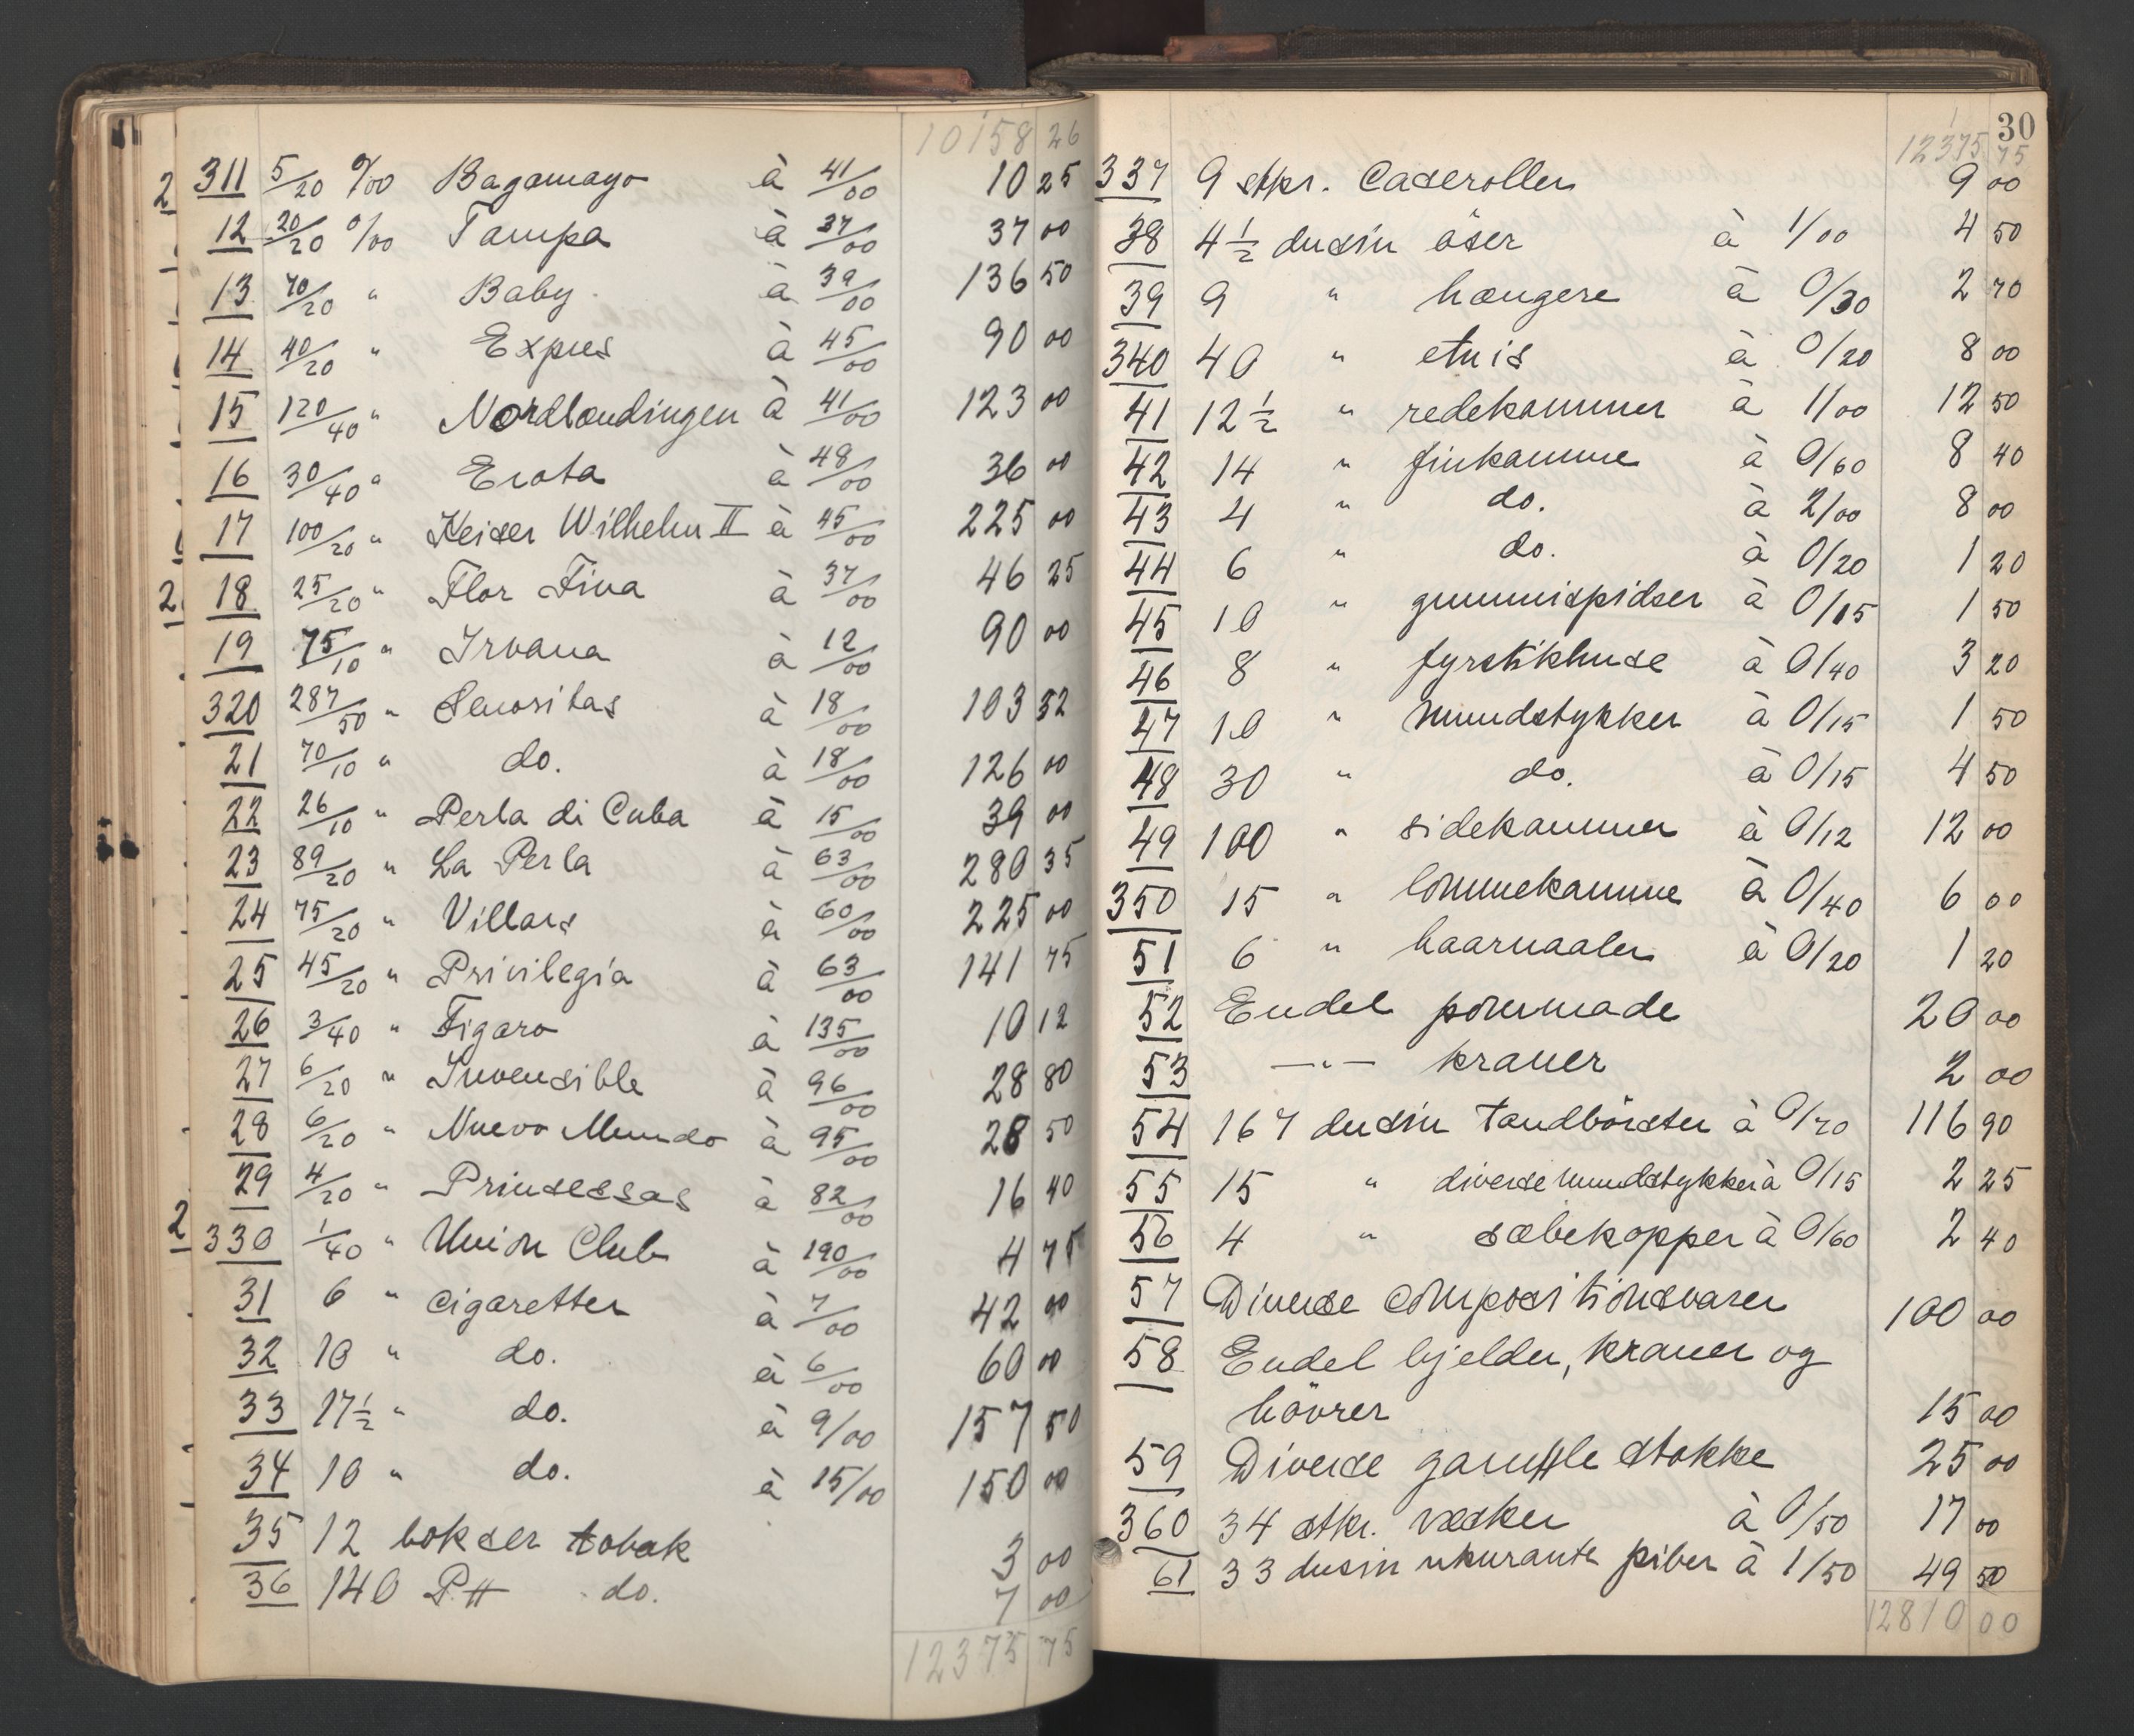 10158 26
2 311 5/20 0/00 Bagamayo à 41/00 10 25
12 20/20 0/00 Tampa à 37/00 37 00
13 70/20 " Baby à 39/00 136 50
14 40/20 " Expres à 45/00 90 00
15 120/40 " Nordlændingen à 41/00 123 00
16 30/40 " Erota à 48/00 36 00
17 100/20 " Keiser Wilhelm II à 45/00 225 00
2 18 25/20 " Flor Fina à 37/00 46 25
19 75/10 " Irvana à 12/00 90 00
320 287/50 " Senoritas à 18/00 103 32
21 70/10 " do. à 18/00 126 00
22 26/10 " Perla di Cuba à 15/00 39 00
23 89/20 " La Perla à 63/00 280 35
24 75/20 " Villars à 60/00 225 00
25 45/20 " Privilegia à 63/00 141 75
26 3/40 " Figaro à 135/00 10 12
27 6/20 " Invensible à 96/00 28 80
28 6/20 " Nuevo Mundo à 95/00 28 50
29 4/20 " Prinsessas à 82/00 16 40
2 330 1/40 " Union Club à 190/00 4 75
31 6 " cigaretter à 7/00 42 00
32 10 " do. à 6/00 60 00
33 17 1/2 " do. à 9/00 157 50
34 10 " do. à 15/00 150 00
35 12 bokser tobak 3 00
36 140 P# do. 7 00
12375 75
30
12375 75
337 9 stkr. Caseroller 9 00
38 4 1/2 dusin öser à 1/00 4 50
39 9 " hængere à 0/30 2 70
340 40 " etuis à 0/20 8 00
41 12 1/2 " redekammer à 1/00 12 50
42 14 " finkamme à 0/60 8 40
43 4 " do. à 2/00 8 00
44 6 " do. à 0/20 1 20
45 10 " gummispidser à 0/15 1 50
46 8 " fyrstikhuse à 0/40 3 20
47 10 " mundstykker à 0/15 1 50
48 30 " do. à 0/15 4 50
49 100 " sidekammer à 0/12 12 00
350 15 " lommekamme à 0/40 6 00
51 6 " haarnaaler à 0/20 1 20
52 Endel pommade 20 00
53 —"— kraner 2 00
54 167 dusin tandbörster à 0/70 116 90
55 15 " diverse mundstykker à 0/15 2 25
56 4 " sæbekopper à 0/60 2 40
57 Diverse compositionsvarer 100 00
58 Endel bjelder, kraner og
hövrer 15 00
59 Diverse gamle stokke 25 00
360 34 stkr. væsker à 0/50 17 00
61 33 dusin ukurante piber à 1/50 49 50
12810 00